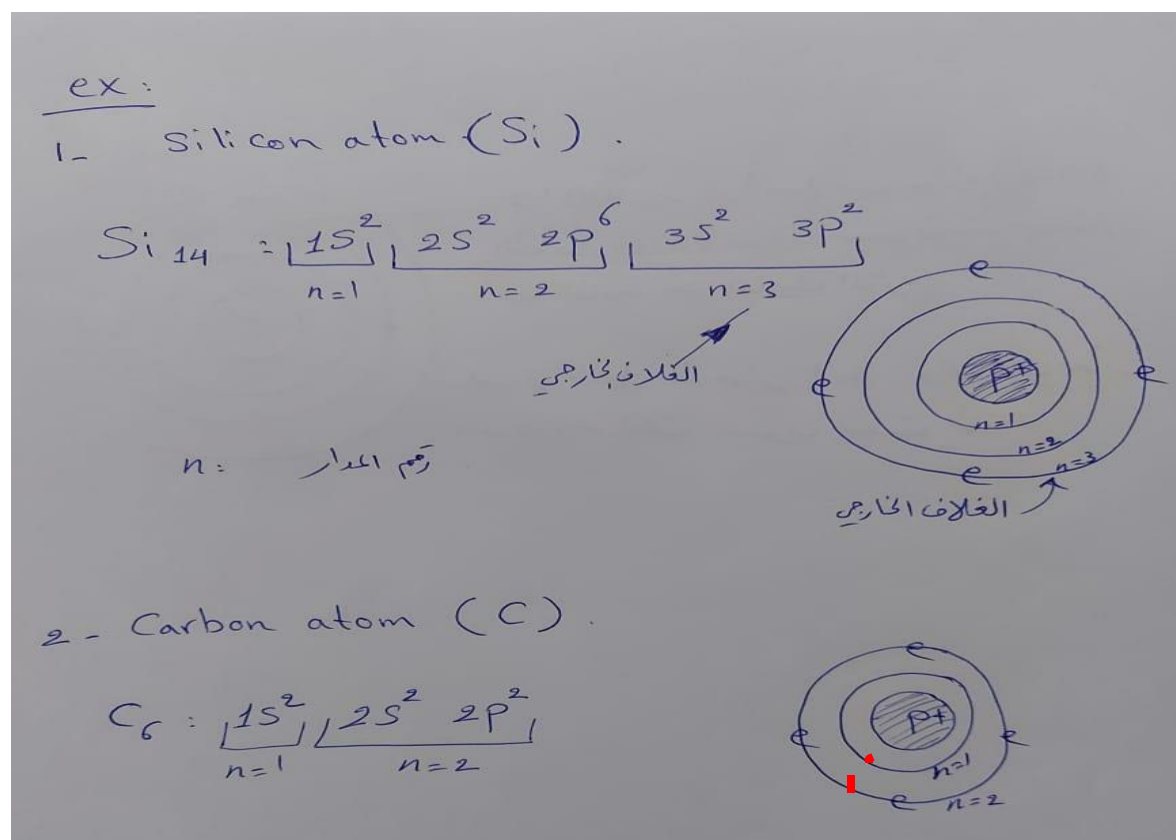 ex:
1- Silicon atom (Si).
Si 14 = 1S² 2S² 2P⁶ 3S² 3P²
n=1 n=2 n=3
الغلاف الخارجي
n: رقم المدار
e
e P+ e
n=1
n=2
n=3
e
الغلاف الخارجي
2- Carbon atom (C).
C₆ : 1S² 2S² 2P²
n=1 n=2
e
e P+ e
n=1
e n=2